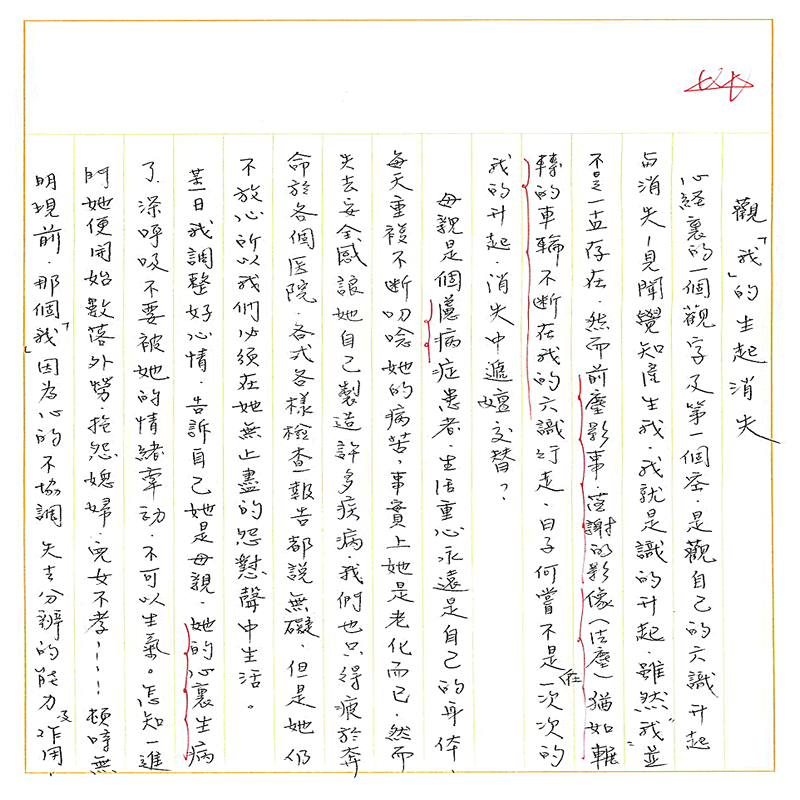 觀「我」的生起消失
心經裏的一個觀字及第一個空,是觀自己的六識升起
与消失—見聞覺知產生我,我就是識的升起,雖然"我"並
不是一直存在,然而前塵影事,落謝的影像(法塵)猶如輾
轉的車輪不斷在我的六識行走,日子何嘗不是在一次次的
我的升起,消失中遞嬗交替?
母親是個慮病症患者,生活重心永遠是自己的身体,
每天重複不斷叨唸她的病苦,事實上她是老化而已,然而
失去安全感讓她自己製造許多疾病,我們也只得疲於奔
命於各個医院,各式各樣檢查報告都說無礙,但是她仍
不放心所以我們必須在她無止盡的怨懟聲中生活。
某日我調整好心情,告訴自己她是母親,她的心裏生病
了,深呼吸不要被她的情緒牽動,不可以生氣。怎知一進
門她便開始數落外勞,抱怨媳婦,兒女不孝----頓時無
明現前,那個「我」因為心的不協調失去分辨的能力及作用,